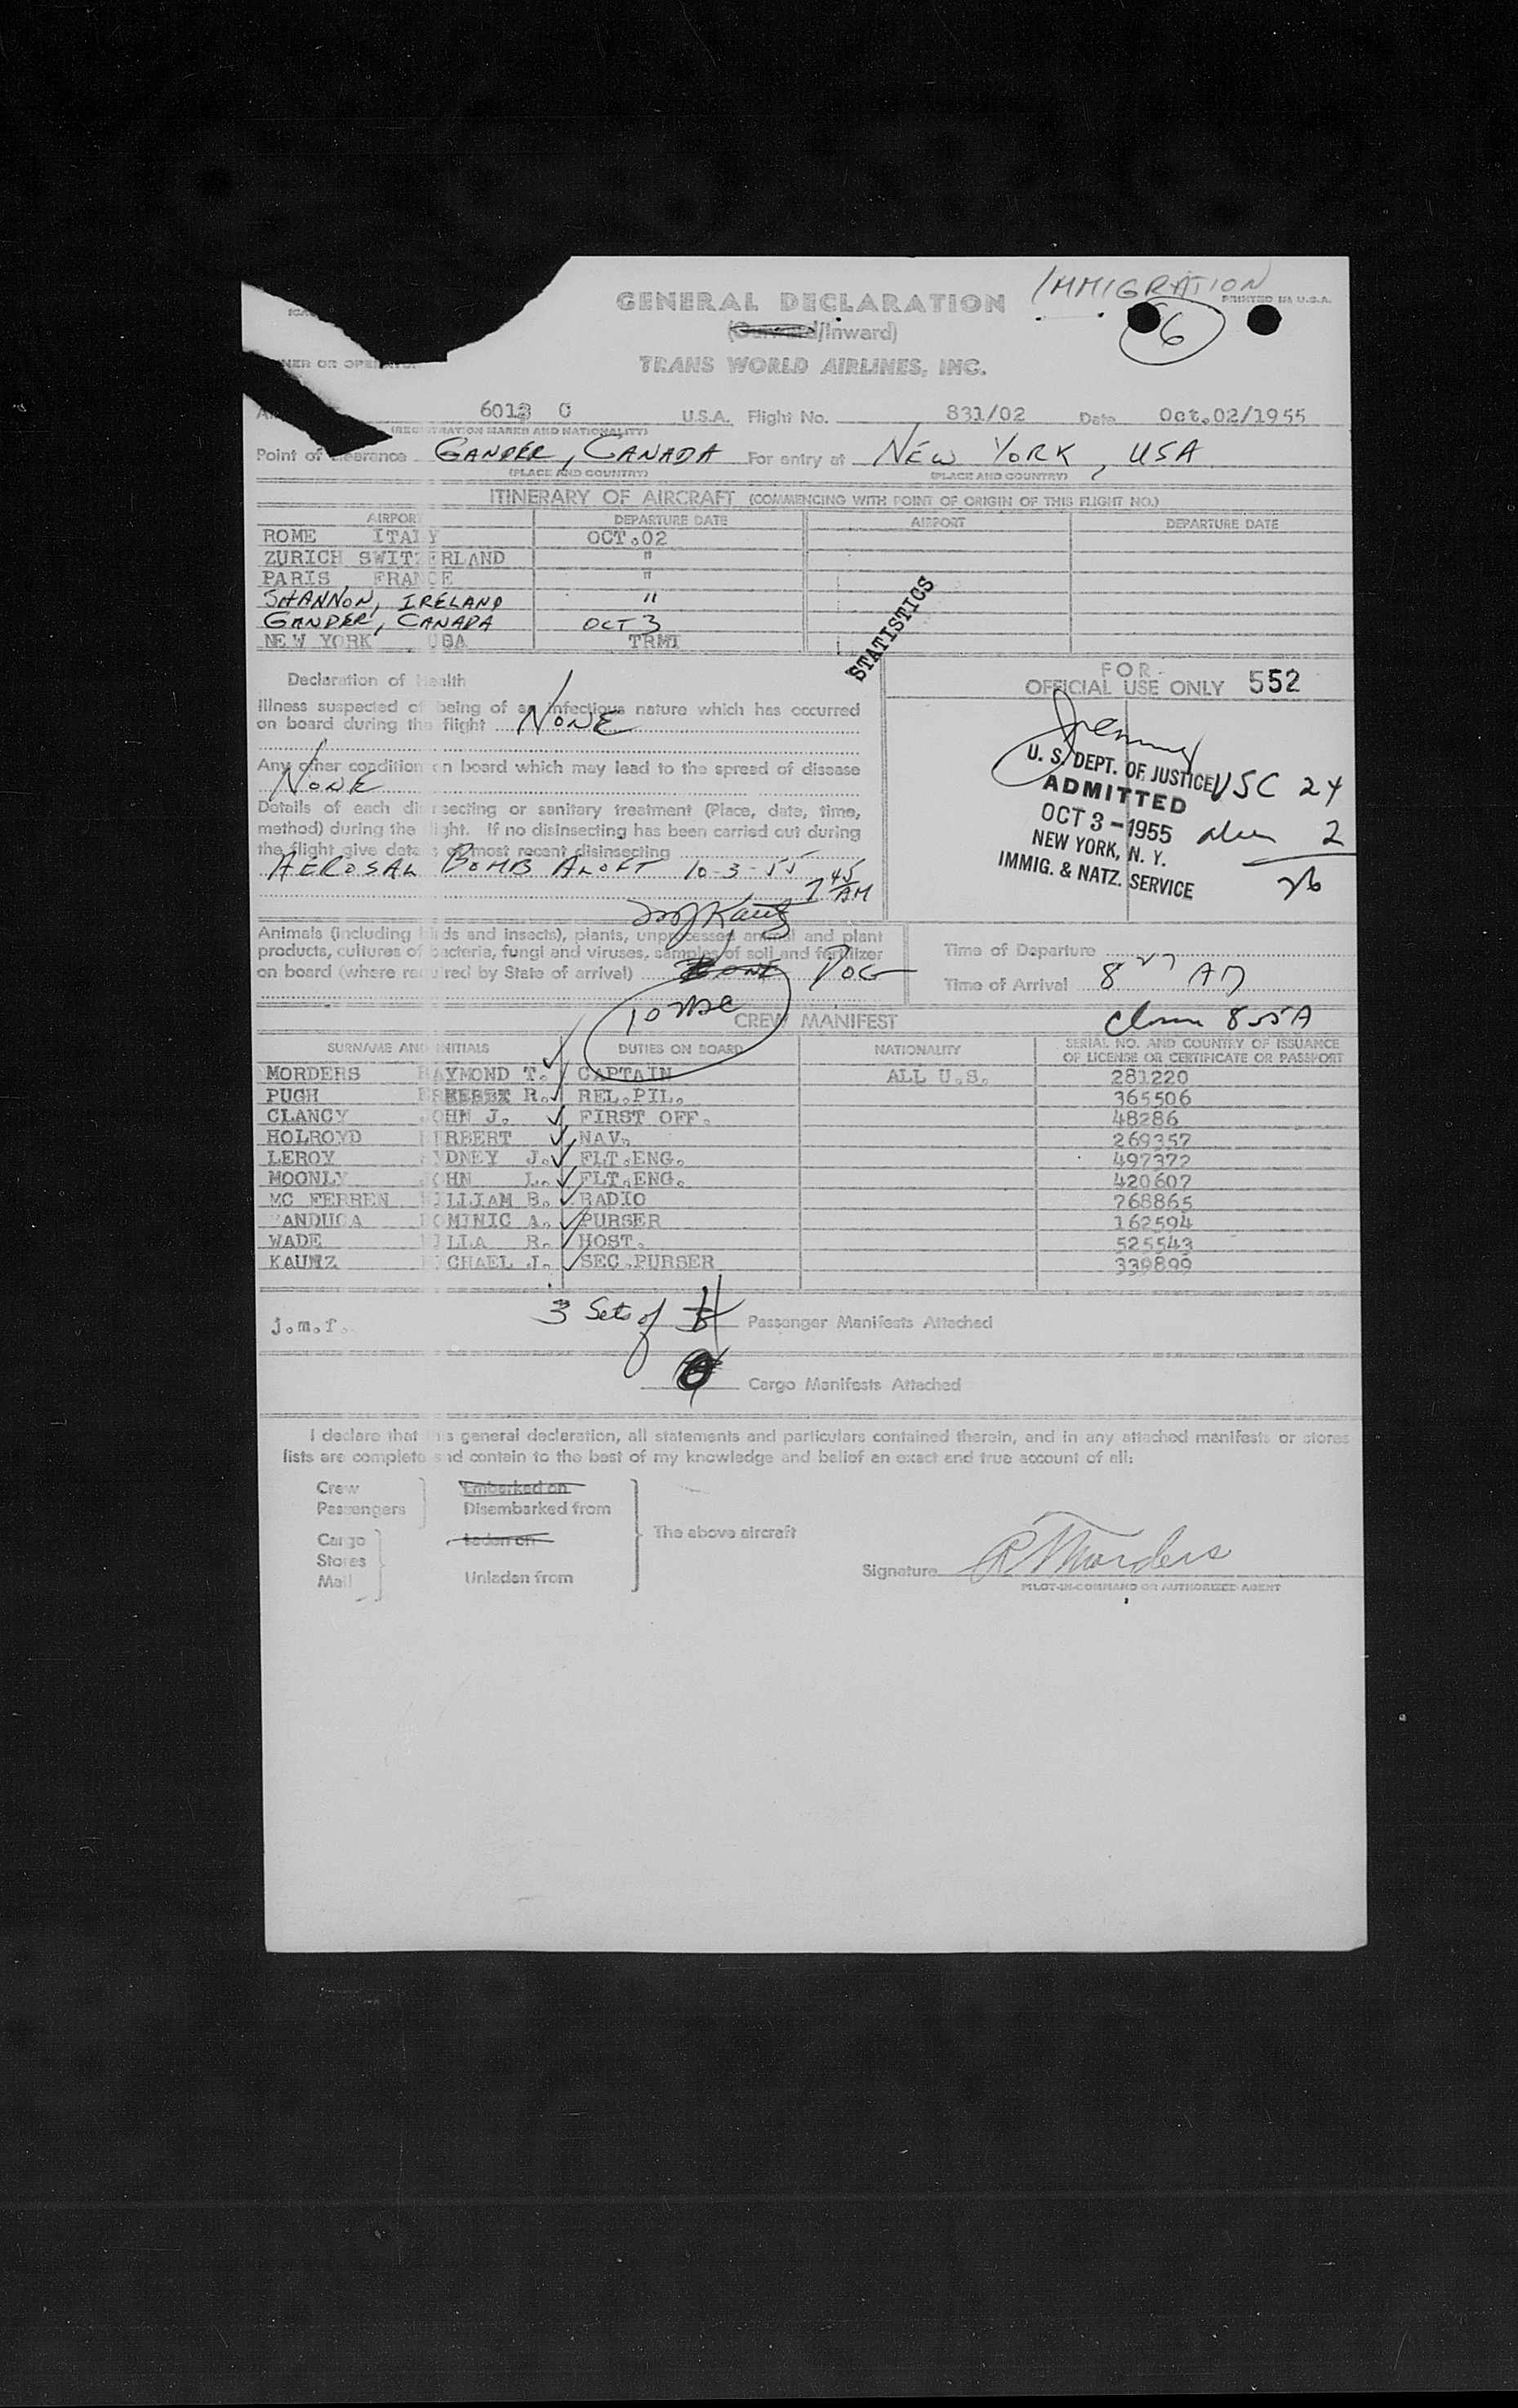 IMMIGRATION
GENERAL DECLARATION
PRINTED IN U.S.A.
(Outward/Inward)
6
NER OR OPERATO
TRANS WORLD AIRLINES, INC.
6013 C U.S.A. Flight No. 831/02 Date Oct.02/1955
(REGISTRATION MARKS AND NATIONALITY)
Point of Clearance GANDER, CANADA For entry at NEW YORK, USA
(PLACE AND COUNTRY) (PLACE AND COUNTRY)
ITINERARY OF AIRCRAFT (COMMENCING WITH POINT OF ORIGIN OF THIS FLIGHT NO.)
AIRPORT DEPARTURE DATE AIRPORT DEPARTURE DATE
ROME ITALY OCT.02
ZURICH SWITZERLAND "
PARIS , FRANCE "
SHANNON, IRELAND "
GANDER, CANADA OCT 3
NEW YORK USA TRMT
STATISTICS
Declaration of Health
FOR
OFFICIAL USE ONLY 552
Illness suspected of being of an infectious nature which has occurred
on board during the flight NONE
Any other condition on board which may lead to the spread of disease
NONE
Details of each disinsecting or sanitary treatment (Place, date, time,
method) during the flight. If no disinsecting has been carried out during
the flight give details of most recent disinsecting
AEROSAL BOMB ALOFT 10-3-55 7 45 AM
U. S. DEPT. OF JUSTICE
ADMITTED
OCT 3 - 1955
NEW YORK, N. Y.
IMMIG. & NATZ. SERVICE
USC 24
alien 2
26
Animals (including birds and insects), plants, unprocessed animal and plant
products, cultures of bacteria, fungi and viruses, samples of soil and fertilizer
on board (where required by State of arrival) NONE DOG
Time of Departure
Time of Arrival 8 27 AM
10 USC
CREW MANIFEST
855A
SURNAME AND INITIALS DUTIES ON BOARD NATIONALITY SERIAL NO. AND COUNTRY OF ISSUANCE
OF LICENSE OR CERTIFICATE OR PASSPORT
MORDERS RAYMOND T. CAPTAIN ALL U.S. 281220
PUGH R. REL.PIL. 365506
CLANCY JOHN J. FIRST OFF. 48286
HOLROYD HERBERT NAV. 269357
LEROY SYDNEY J. FLT.ENG. 497372
MOONLY JOHN L. FLT.ENG. 420607
MC FERREN WILLIAM B. RADIO 768865
ANDUCA DOMINIC A. PURSER 162594
WADE R. HOST. 525543
KAUTZ MICHAEL J. SEC.PURSER 339899
j.m.f.
3 Sets of Passenger Manifests Attached
0 Cargo Manifests Attached
I declare that this general declaration, all statements and particulars contained therein, and in any attached manifests or stores
lists are complete and contain to the best of my knowledge and belief an exact and true account of all:
Crew Embarked on
Passengers Disembarked from
Cargo Laden on The above aircraft
Stores
Mail Unladen from
Signature R T Morders
PILOT-IN-COMMAND OR AUTHORIZED AGENT